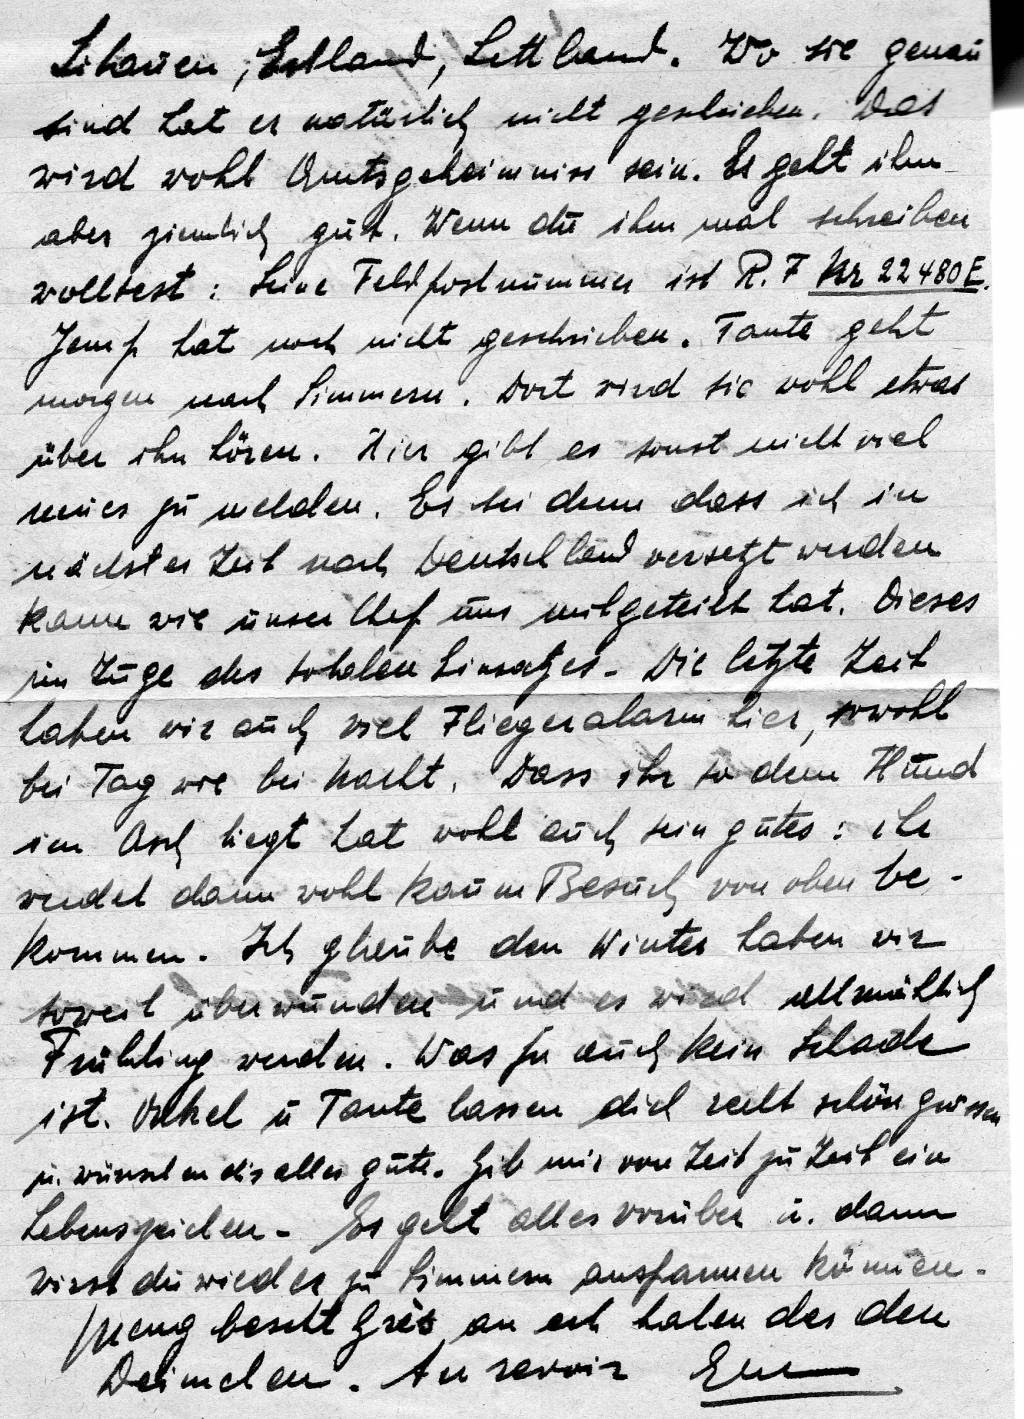 Lithauen, Estland, Lettland. Wo sie genau
sind hat er natürlich nicht geschrieben. Das
wird wohl Amtsgeheimniss sein. Es geht ihm
aber ziemlich gut. Wenn du ihm mal schreiben
wolltest: Seine Feldpostnummer ist R. F Nr 22480E.
Jemp hat noch nicht geschrieben. Tante geht
morgen nach Simmern. Dort wird sie wohl etwas
über ihn hören. Hier gibt es sonst nicht viel
neues zu melden. Es sei denn dass ich in
nächster Zeit nach Deutschland versetzt werden
kann wie unser Chef uns mitgeteilt hat. Dieses
im Zuge des totalen Einsatzes. Die letzte Zeit
haben wir auch viel Fliegeralarm hier, sowohl
bei Tag wie bei Nacht. Dass ihr so dem Hund
im Asch liegt hat wohl auch sein gutes: ihr
werdet dann wohl kaum Besuch von oben be-
kommen. Ich glaube den Winter haben wir
soweit überwunden und es wird allmählich
Frühling werden. Was ja auch kein Schade
ist. Onkel u Tante lassen dich recht schön grüssen
u. wünschen dir alles gute. Gib mir von Zeit zu Zeit ein
Lebenszeichen. Es geht alles vorüber u. dann
wirst du wieder zu Simmern ausspannen können.
Meng bescht Gréis an ech halen der den
Deimchen. Au revoir